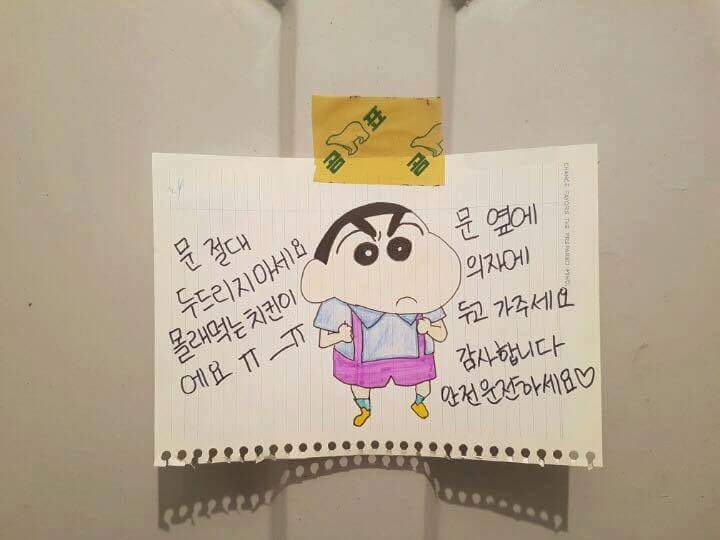 곰표
곰
문 절대
두드리지마세요
몰래먹는 치킨이
에요 ㅠ_ㅠ
문 옆에
의자에
두고 가주세요
감사합니다
안전운전하세요♡
CHANCE FAVORS THE PREPARED MIND